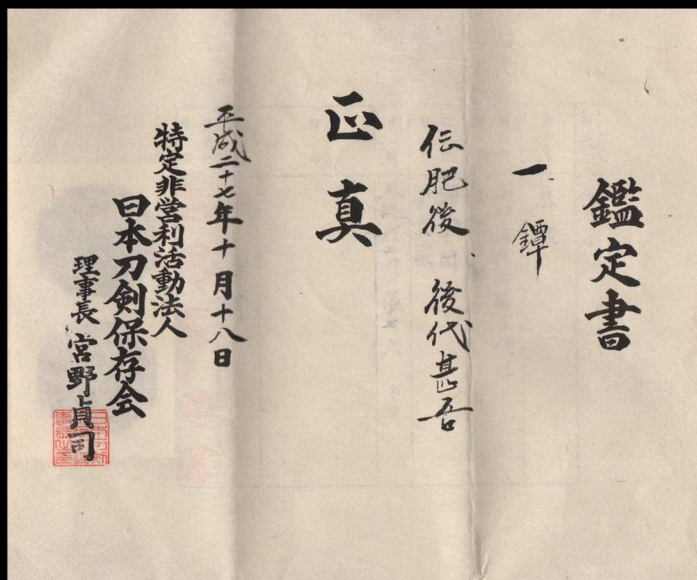 鑑定書
一 鐔
伝肥後 後代甚吾
正真
平成二十七年十月十八日
特定非営利活動法人
日本刀剣保存会
理事長 宮野貞司